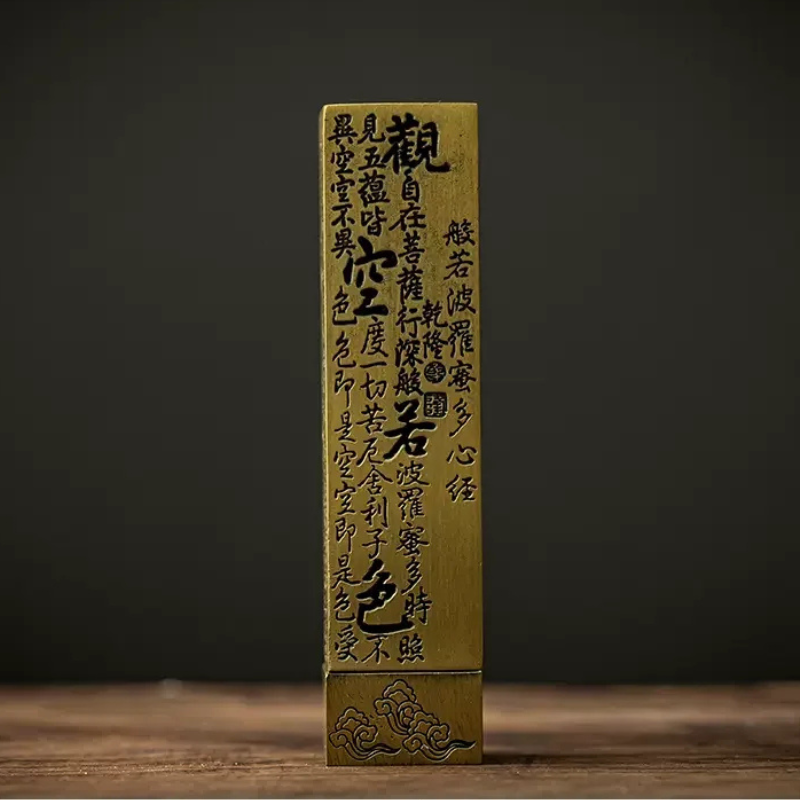 般若波羅蜜多心经
乾隆
觀自在菩薩行深般若波羅蜜多時照
見五蘊皆空度一切苦厄舍利子色不
異空空不異色色即是空空即是色受